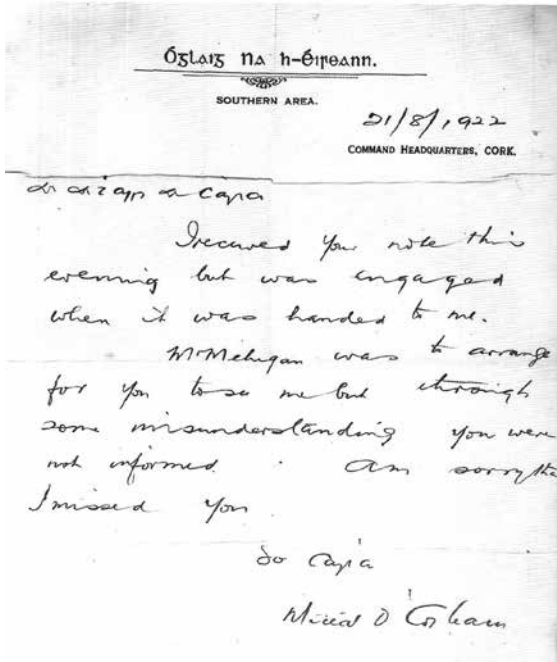 Óglaigh na h-Éireann.
SOUTHERN AREA.
21/8/1922
COMMAND HEADQUARTERS, CORK.
a cara
I received your note this
evening but was engaged
when it was handed to me.
Mr Mehigan was to arrange
for you to see me but through
some misunderstanding you were
not informed. Am sorry tha
I missed you
do cara